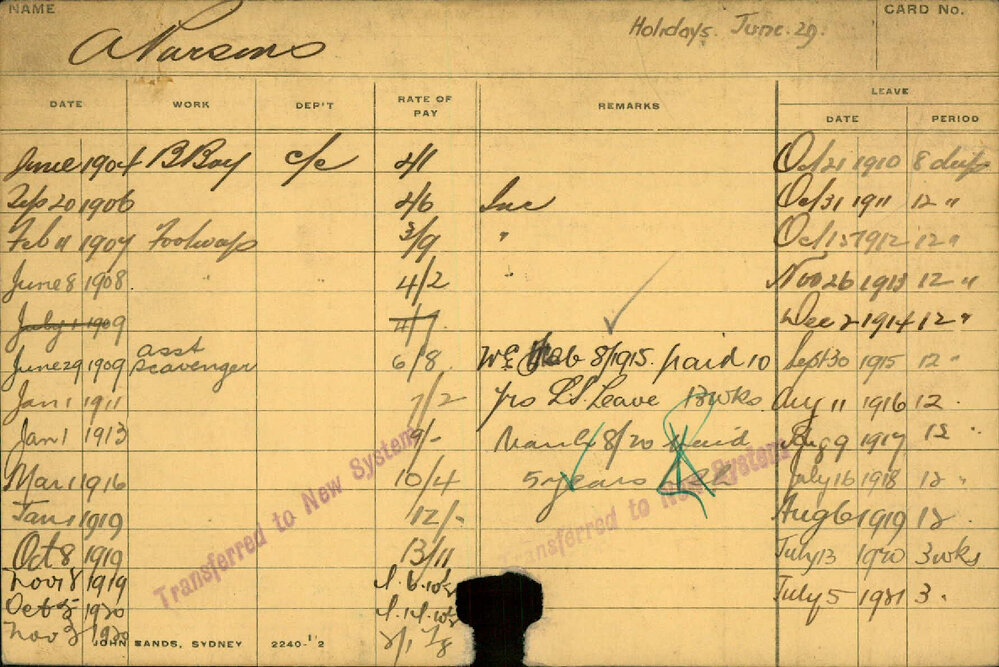 NAME A Parsons Holidays. June. 29. CARD No.
LEAVE
DATE WORK DEP'T RATE OF PAY REMARKS DATE PERIOD
June 1904 B Boy c/c 2/1 Oct 21 1910 8 days
Sep 20 1906 2/6 Inc Oct 31 1911 12 "
Feb 11 1907 Footways 3/9 " Oct 15 1912 12 "
June 8 1908 4/2 " Nov 26 1913 12 "
July 1 1909 4/7 Dec 2 1914 12 "
June 29 1909 asst Scavenger 6/8 8/1915. paid 10 Sept 30 1915 12 "
Jan 1 1911 7/2 yrs L.S. Leave 13 wks. Aug 11 1916 12 "
Jan 1 1913 9/- March 8/20 paid Aug 9 1917 12 "
Mar 1 1916 10/4 5 years July 16 1918 12 "
Jan 1 1919 12/- Aug 6 1919 12
Oct 8 1919 13/11 July 13 1920 3 wks
Nov 8 1919 July 5 1921 3 "
Oct 1920
Nov 3 1920
Transferred to New System
Transferred to New System
JOHN SANDS, SYDNEY 2240-12